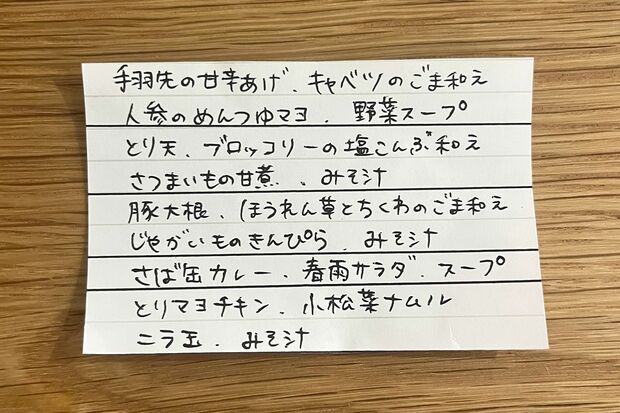 手羽先の甘辛あげ、キャベツのごま和え
人参のめんつゆマヨ、野菜スープ
とり天、ブロッコリーの塩こんぶ和え
さつまいもの甘煮、みそ汁
豚大根、ほうれん草とちくわのごま和え
じゃがいものきんぴら、みそ汁
さば缶カレー、春雨サラダ、スープ
とりマヨチキン、小松菜ナムル
ニラ玉、みそ汁